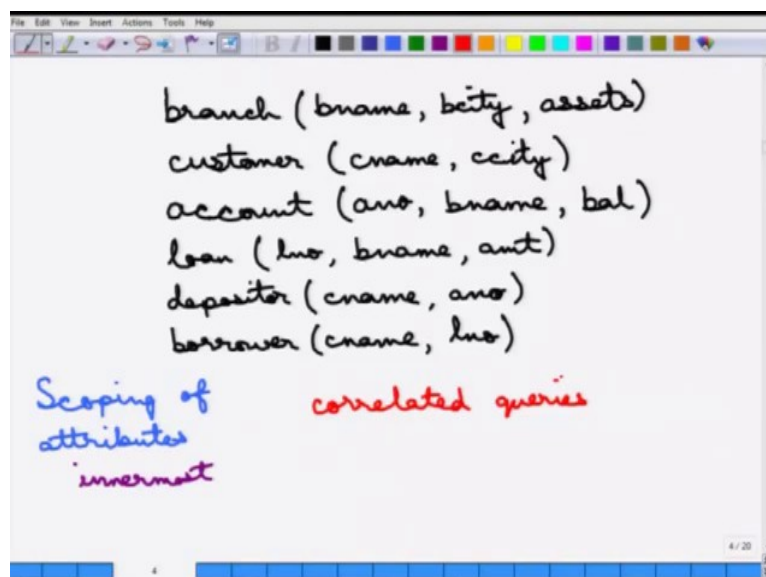 File Edit View Insert Actions Tools Help
branch (bname, bcity, assets)
customer (cname, ccity)
account (ano, bname, bal)
loan (lno, bname, amt)
depositor (cname, ano)
borrower (cname, lno)
Scoping of correlated queries
attributes
innermost
4 / 20
4